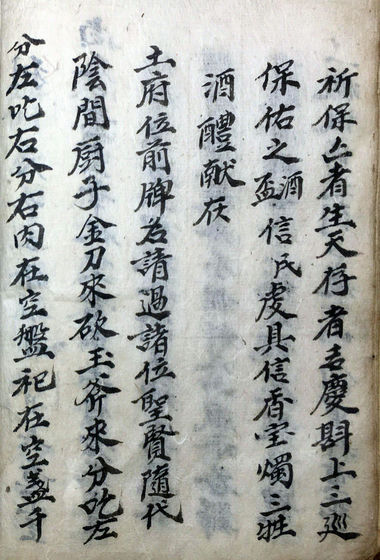 祈保亡者生天存者吉慶斟上三廵
保佑之盃酒信民虔具信香宝燭三牲
酒醴献茯
土府位前牌名請過諸位聖賢隨代
陰間厨子金刀來砍玉斧來分吃左
分左吃右分右肉在空盤祀在空盞千